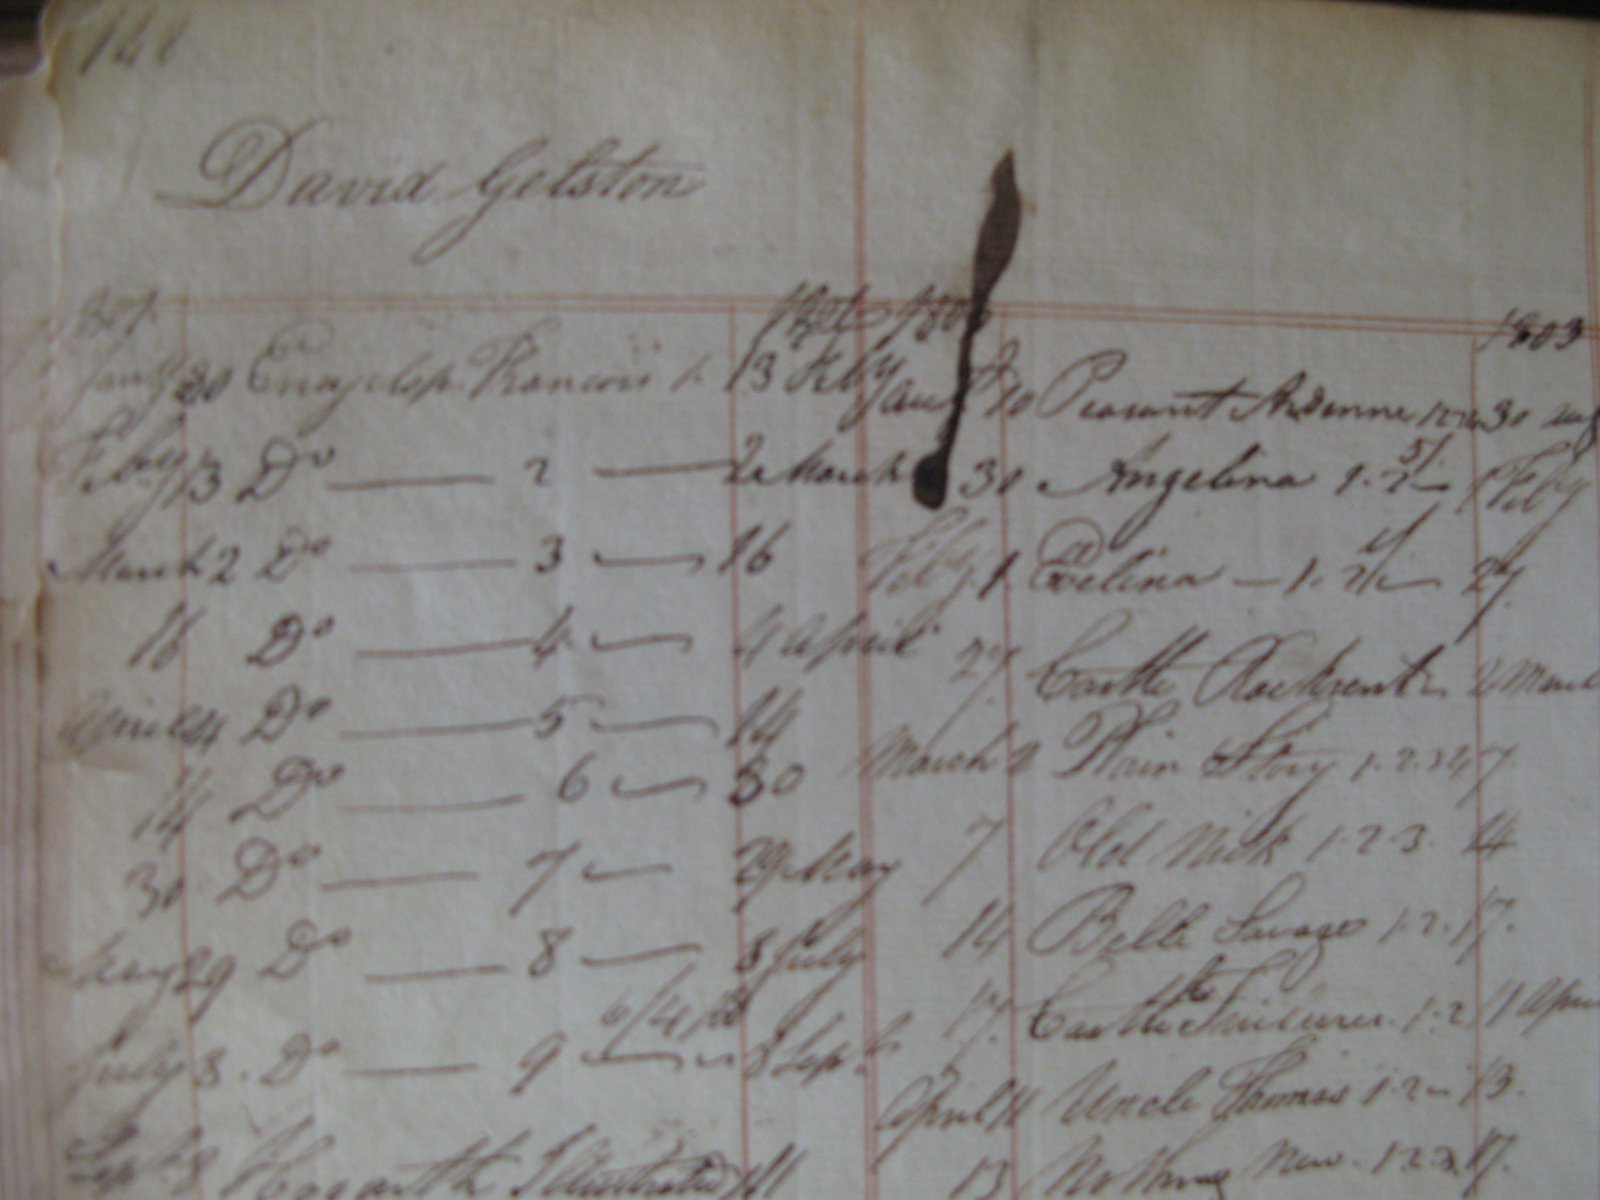 David Gelston
1801
Jany 30 Encyclop. Francois 1. 13 Feby
Feby 13 Do 2 2 March
March 2 Do 3 16
16 Do 4 4 April
April 4 Do 5 14
14 Do 6 30
30 Do 7 29 May
May 29 Do 8 8 July
6/4
July 8. Do 9 8 Sept.
Sept. 8 Hogarth Illustrated 11
1803
10 Peasant Ardenne 30
5/
30 Angelina 1. 2 1 Feby
Feby 1 Evelina 1. 2 27
27 Castle Rackrent 2 March
March 2 Plain Story 1. 2. 3 4 7
7 Old Nick 1. 2. 3. 14
14 Belle Savage 1. 2. 17.
17. Castle 1. 2 11 April
April 11 Uncle Thomas 1. 2 13.
13 Nothing New. 1. 2. 3. 17.